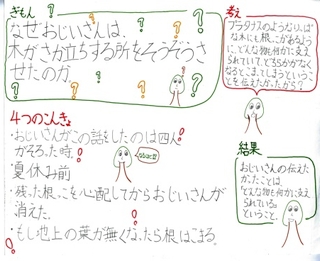 ぎもん
なぜおじいさんは、
木がさか立ちする所をそうぞうさ
せたのか。
考え
プラタナスのようなりっぱ
な木にも根っこがあるよう
に、どんな物も何かに支え
られていて、どちらかがなく
なるとこまってしまうというこ
とを伝えたかったから?
4つのこんきょ
・おじいさんがこの話をしたのは四人
がそろった時。
・夏休み前
・残った根っこを心配してからおじいさんが
消えた。
・もし地上の葉が無くなったら根はこまる。
結果
おじいさんの伝えた
かったことは
「どんな物も何かに支え
られている。」
ということ。